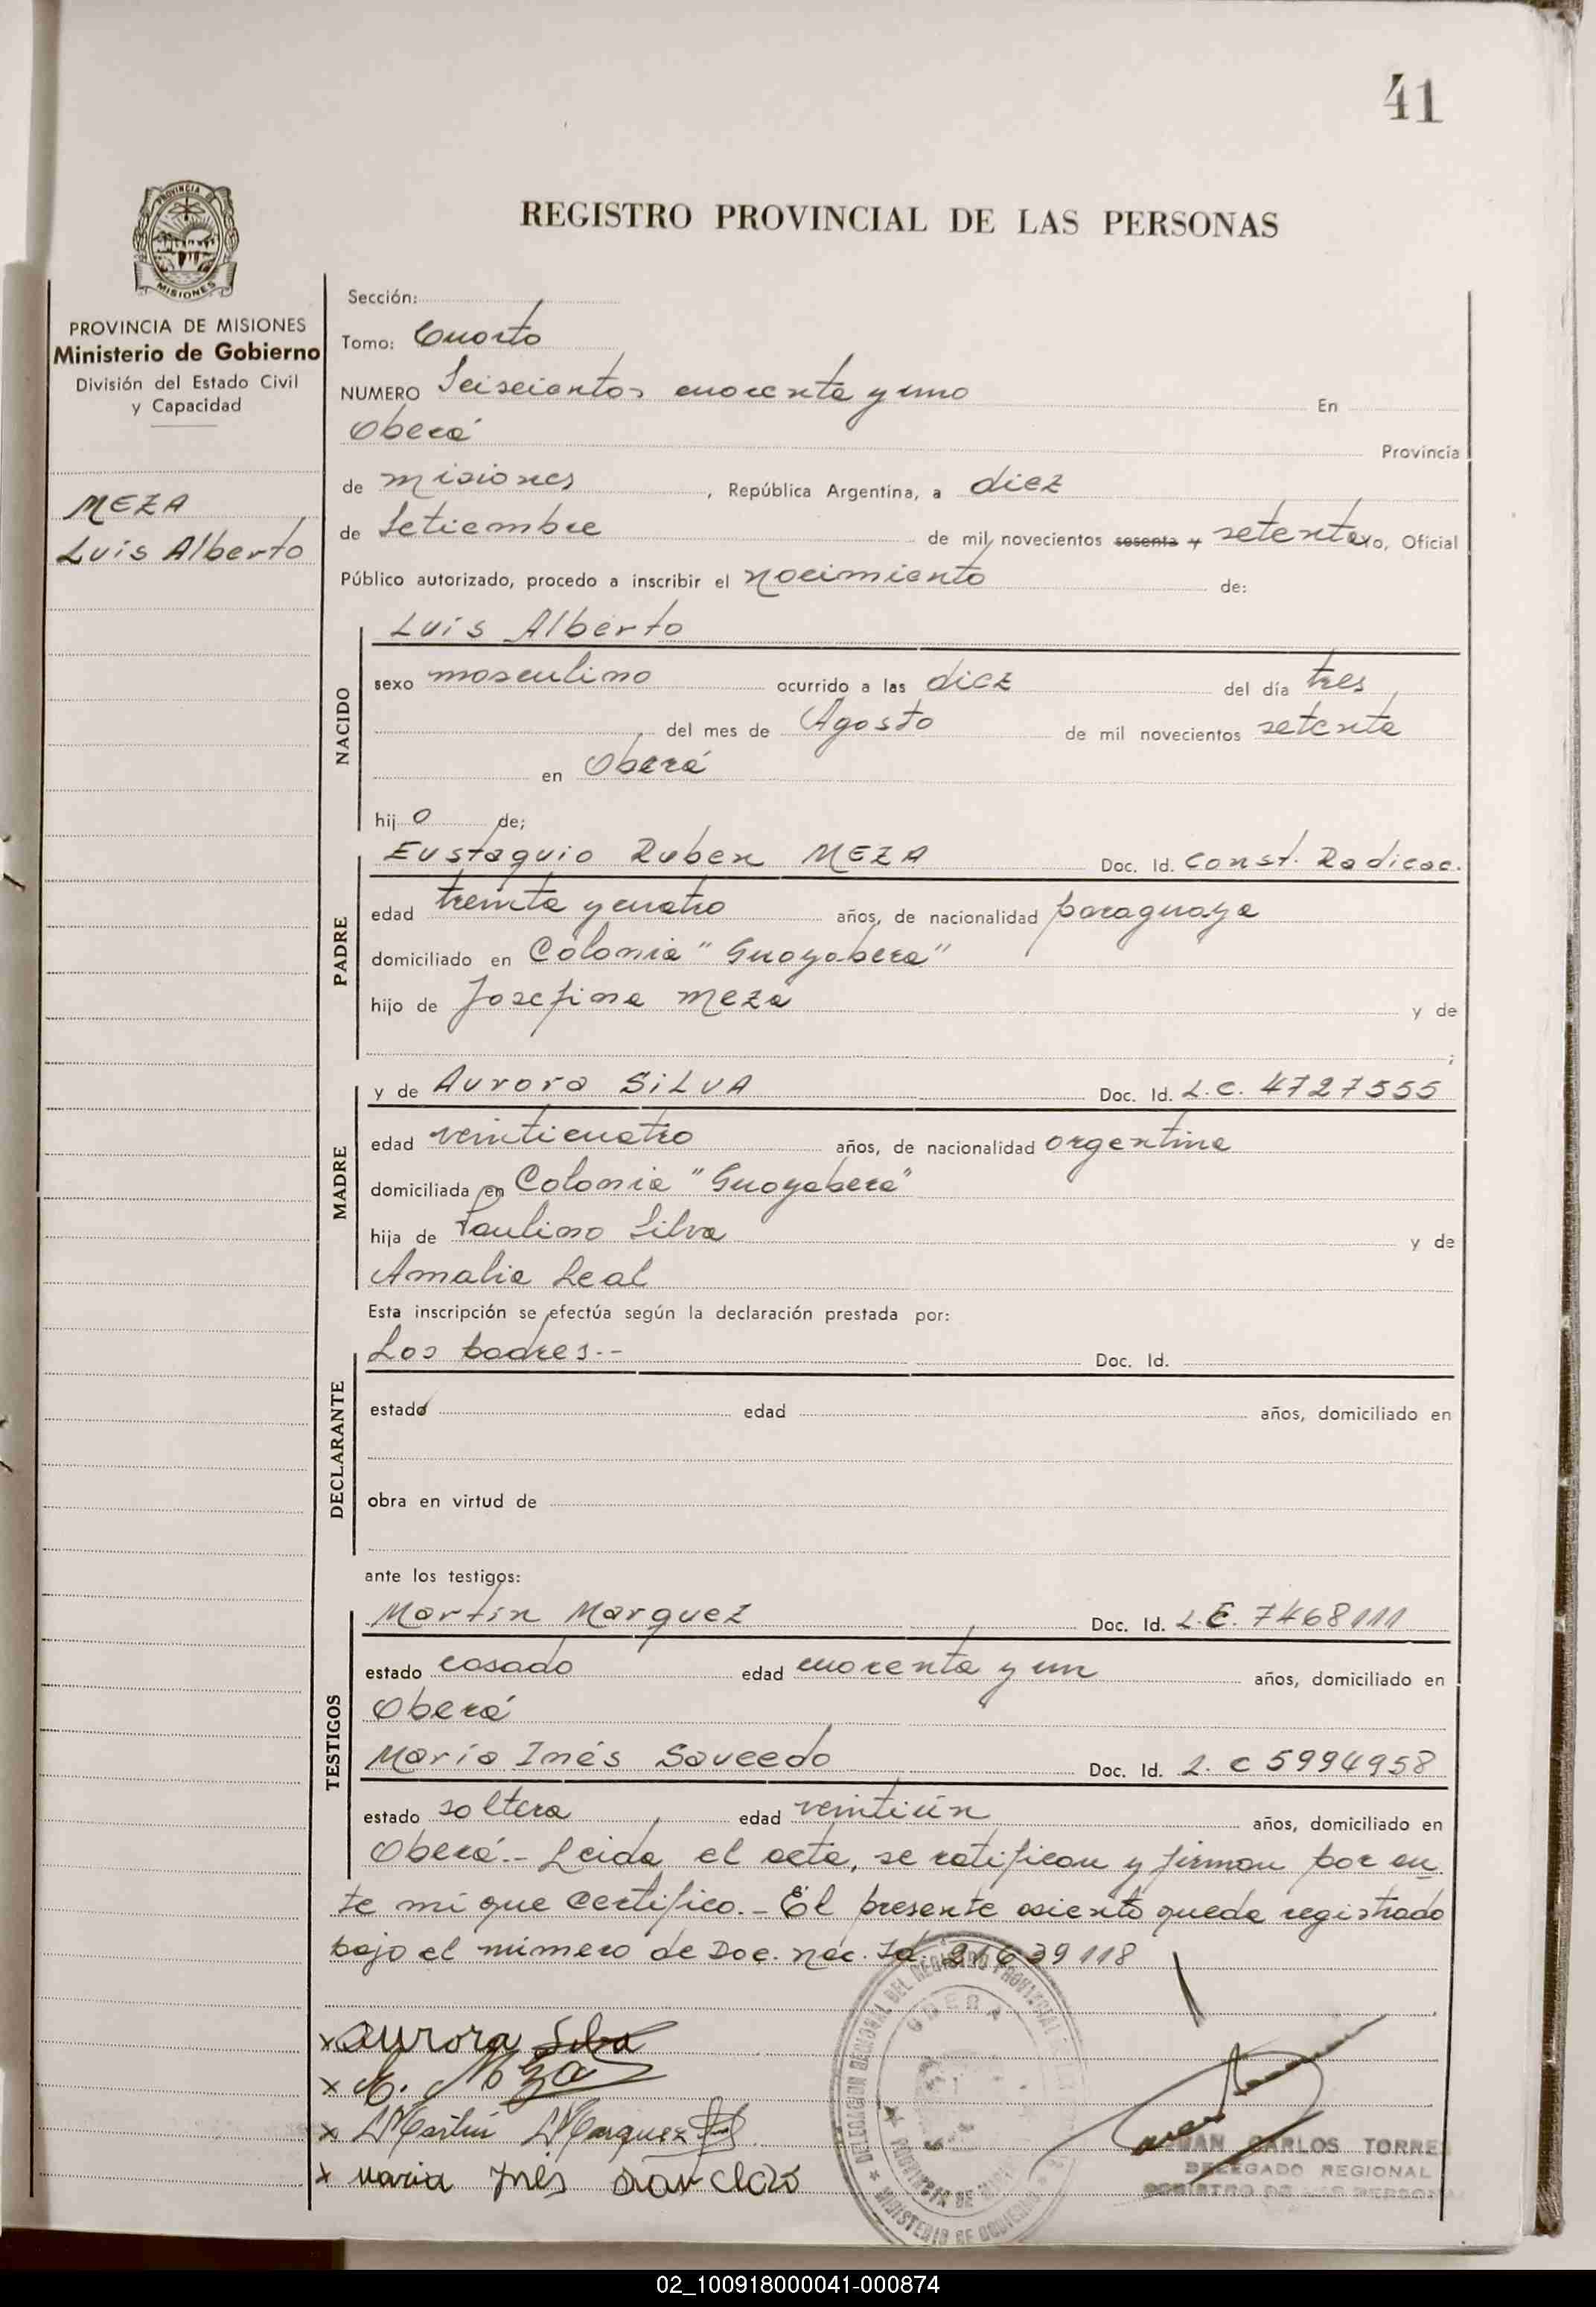 41
PROVINCIA DE
MISIONES
REGISTRO PROVINCIAL DE LAS PERSONAS
PROVINCIA DE MISIONES
Ministerio de Gobierno
División del Estado Civil
y Capacidad
MEZA
Luis Alberto
Sección:
Tomo: Cuarto
NUMERO Seiscientos cuarenta y uno En
Oberá Provincia
de Misiones, República Argentina, a diez
de Setiembre de mil novecientos sesenta y setenta yo, Oficial
Público autorizado, procedo a inscribir el nacimiento de:
NACIDO
Luis Alberto
sexo masculino ocurrido a las diez del día tres
del mes de Agosto de mil novecientos setenta
en Oberá
hijo de;
PADRE
Eustaquio Ruben MEZA Doc. Id. Const. Radicac.
edad treinta y cuatro años, de nacionalidad paraguaya
domiciliado en Colonia "Guayabera"
hijo de Josefina Meza y de
;
MADRE
y de Aurora SILVA Doc. Id. L.C. 4727555
edad veinticuatro años, de nacionalidad argentina
domiciliada en Colonia "Guayabera"
hija de Paulino Silva y de
Amalia Leal
Esta inscripción se efectúa según la declaración prestada por:
DECLARANTE
Los padres.-- Doc. Id.
estado edad años, domiciliado en
obra en virtud de
ante los testigos:
TESTIGOS
Martín Marquez Doc. Id. L.E. 7468111
estado casado edad cuarenta y un años, domiciliado en
Oberá
María Inés Saucedo Doc. Id. L.C 5994958
estado soltera edad veintiún años, domiciliado en
Oberá.- Leida el acta, se ratifican y firman por an
te mí que certifico.- El presente asiento queda registrado
bajo el número de Doc. nac. Id. 21639118
x Aurora Silva
x E. Meza
x Martin Marquez
x Maria Ines Saucedo
DELEGACION REGIONAL DEL REGISTRO PROVINCIAL DE LAS
OBERA
PROVINCIA DE MISIONES
MINISTERIO DE GOBIERNO
JUAN CARLOS TORRES
DELEGADO REGIONAL
REGISTRO DE LAS PERSONAS
02_100918000041-000874